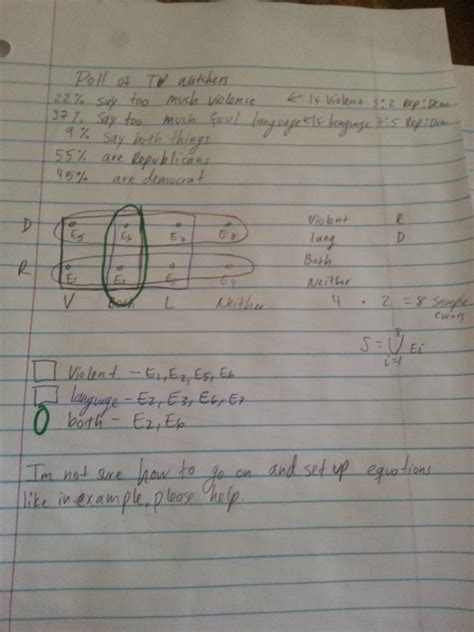 Poll of TV watchers
22% say too much violence ← If Violent 3:2 Rep:Dem
37% say too much foul language ← If language 7:5 Rep:Dem
9% say both things
55% are Republicans
45% are democrat
Violent R
D E5 E6 E7 E8 lang D
Both
R E1 E2 E3 E4 Neither
V Both L Neither 4 · 2 = 8 Sample events
S = ⋃ Ei
8
i=1
Violent – E1, E2, E5, E6
language – E2, E3, E6, E7
both – E2, E6
Im not sure how to go on and set up equations
like in example, please help.